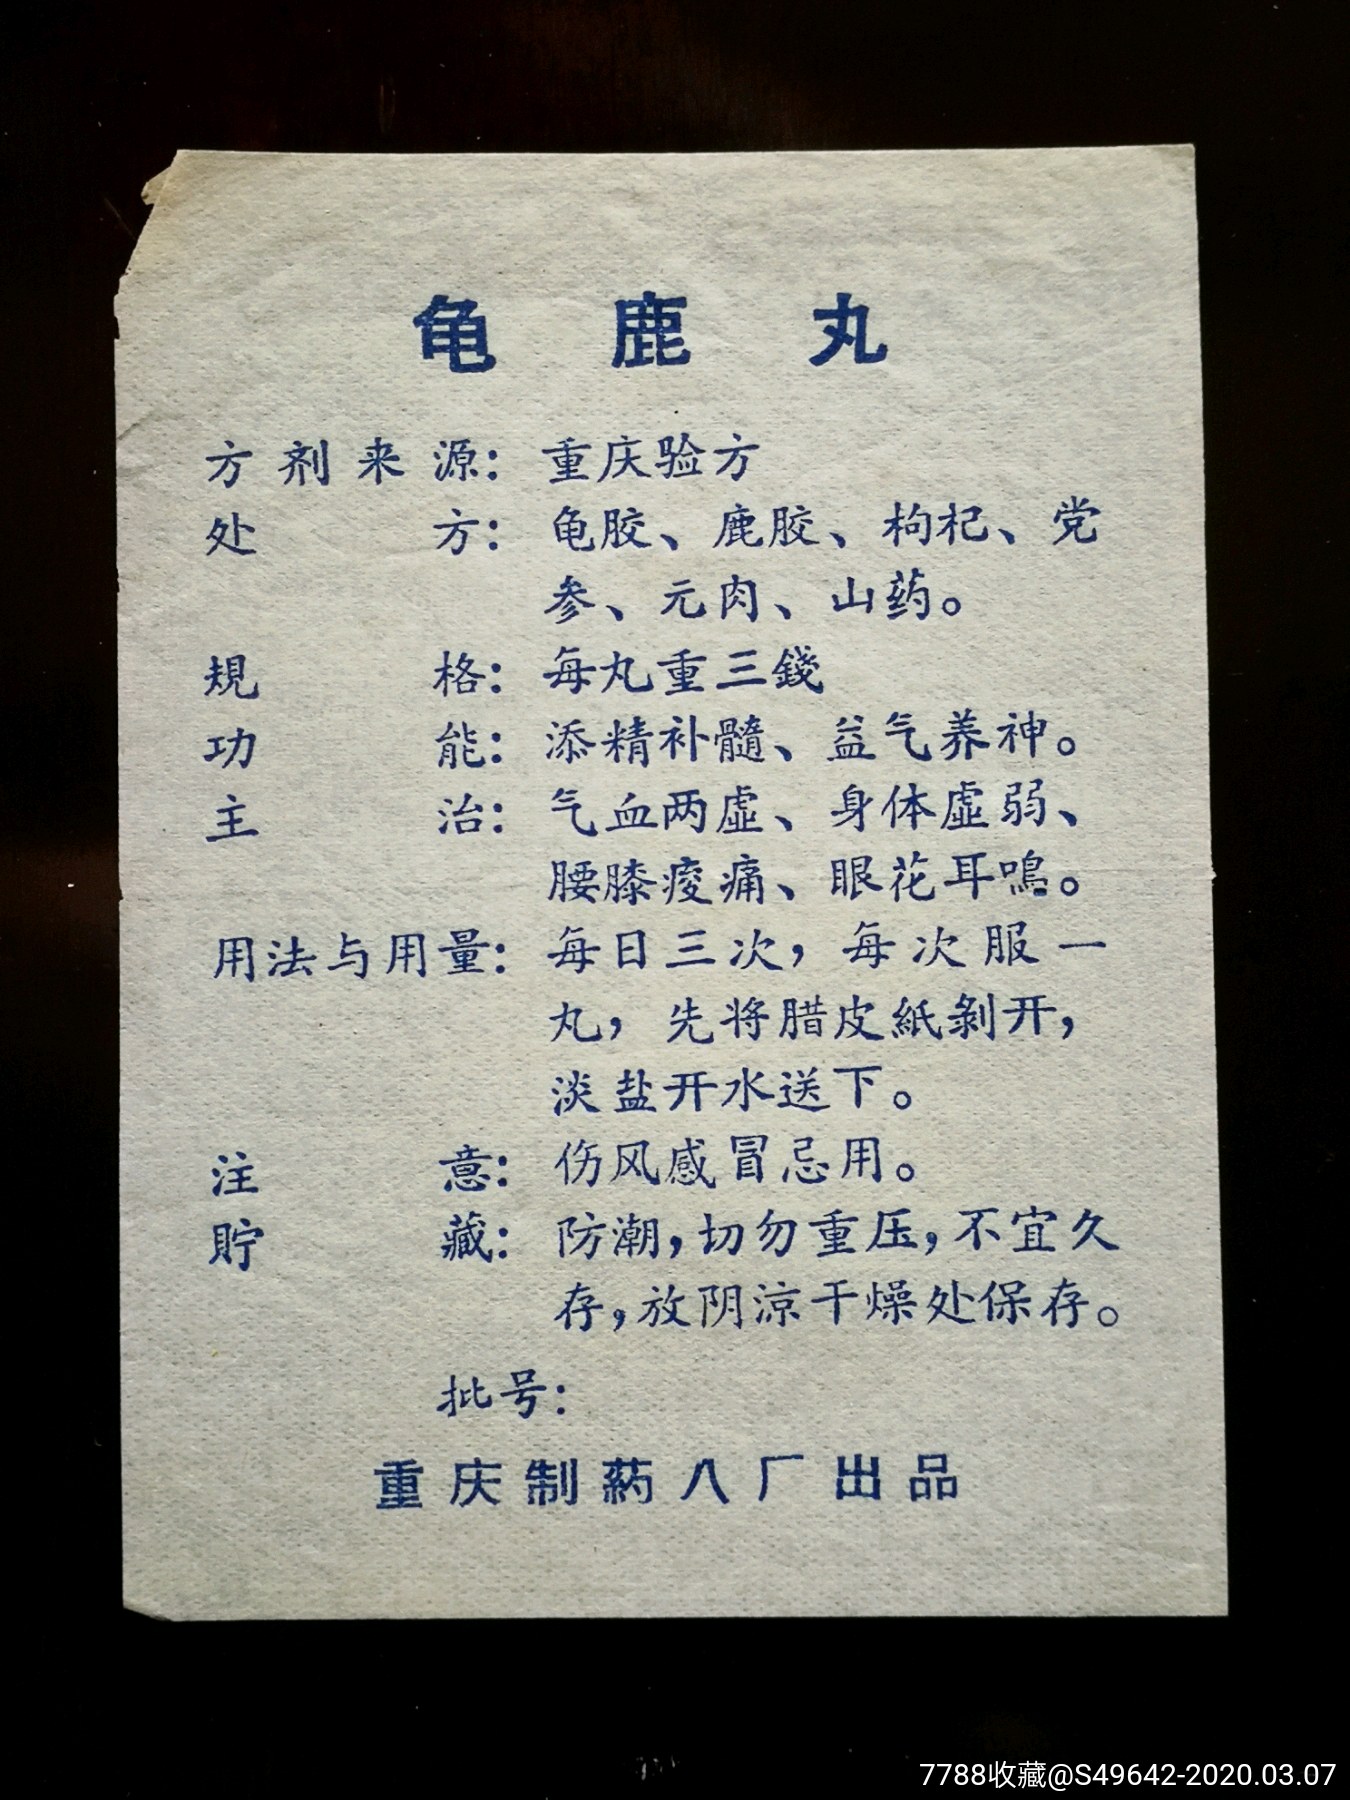 龟鹿丸
方剂来源：重庆验方
处方：龟胶、鹿胶、枸杞、党
参、元肉、山药。
規格：每丸重三錢
功能：添精补髓、益气养神。
主治：气血两虚、身体虚弱、
腰膝痠痛、眼花耳鳴。
用法与用量：每日三次，每次服一
丸，先将腊皮紙剝开，
淡盐开水送下。
注意：伤风感冒忌用。
貯藏：防潮，切勿重压，不宜久
存，放阴凉干燥处保存。
批号：
重庆制药八厂出品
7788收藏@S49642-2020.03.07